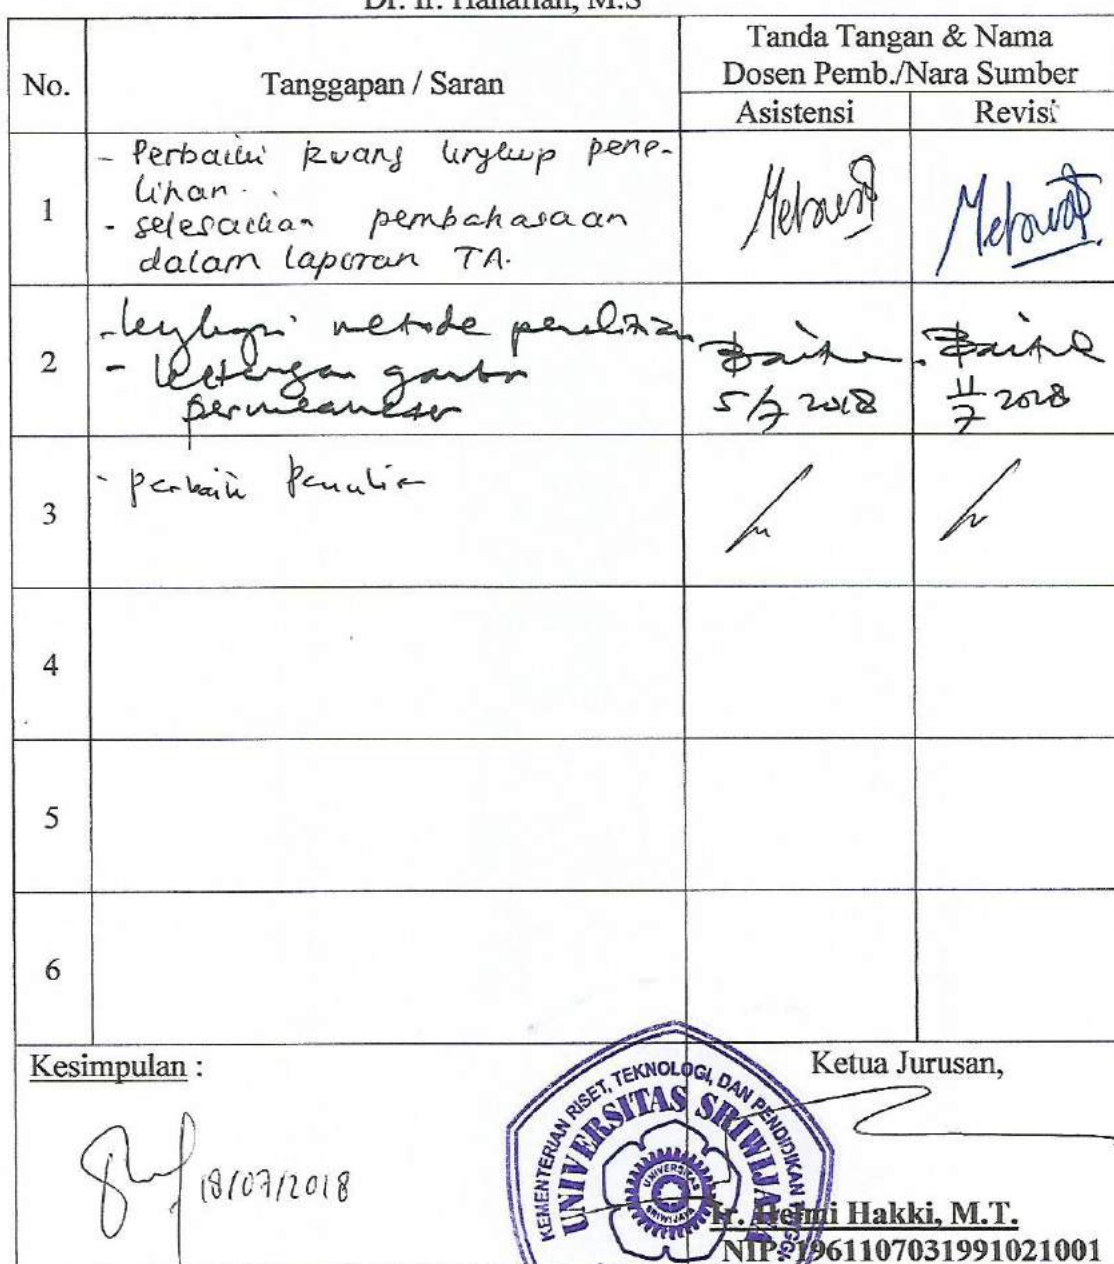 Dr. Ir. Hanafiah, M.S
No.
Tanggapan / Saran
Tanda Tangan & Nama
Dosen Pemb./Nara Sumber
Asistensi
Revisi
1
- Perbaiki ruang lingkup pene-
litian.
- selesaikan pembahasaan
dalam laporan TA.
2
- lengkapi metode penelitian
- keterangan gambar
permeameter
5/7 2018
11/7 2018
3
- perbaiki penulisan
4
5
6
Kesimpulan :
18/07/2018
KEMENTERIAN RISET, TEKNOLOGI, DAN PENDIDIKAN TINGGI
UNIVERSITAS SRIWIJAYA
UNIVERSITAS
SRIWIJAYA
Ketua Jurusan,
Ir. Helmi Hakki, M.T.
NIP. 196110703199102100​1